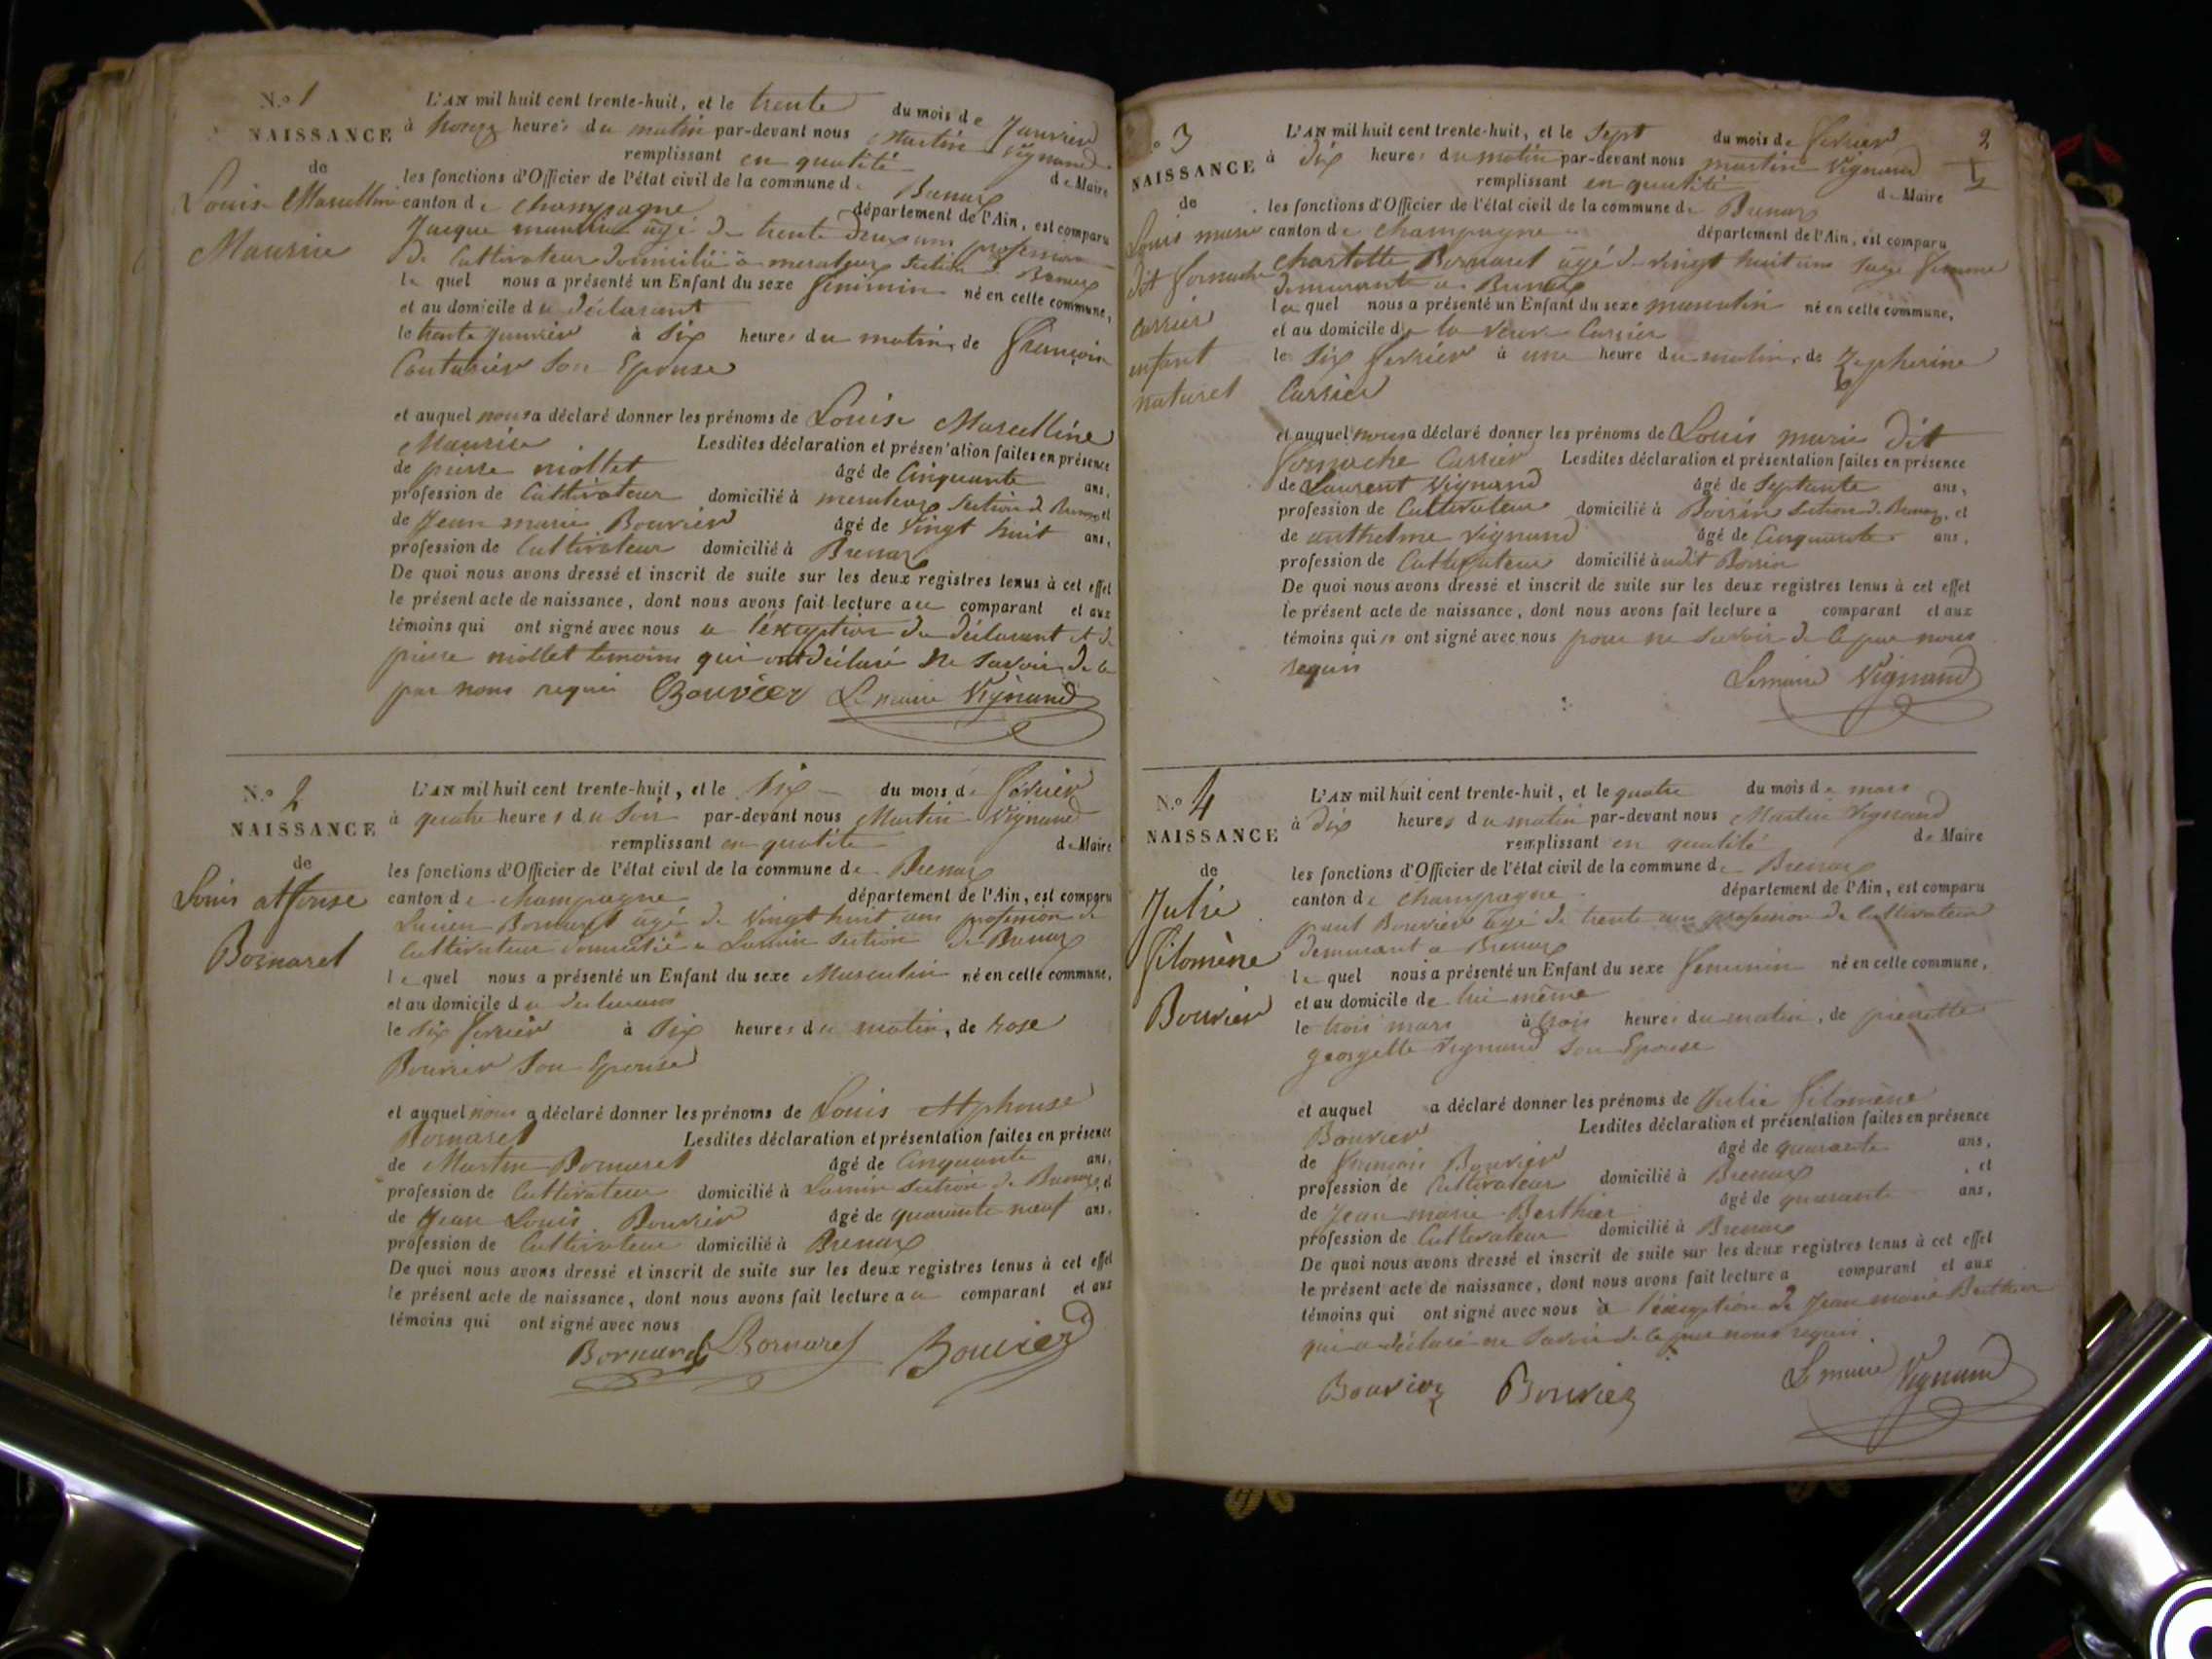 N.o 1
NAISSANCE
de
Louise Marcelline
Maurin
L'AN mil huit cent trente-huit, et le trente du mois de Janvier
à heures du matin par-devant nous Martin Vignand
remplissant en qualité de Maire
les fonctions d'Officier de l'état civil de la commune de Brenaz
canton de Champagne département de l'Ain, est comparu
Jacque âgé de trente deux ans profession
de Cultivateur domicilié à section de Brenaz
le quel nous a présenté un Enfant du sexe féminin né en cette commune,
et au domicile du déclarant
le trente Janvier à Six heures du matin, de
son Epouse
et auquel nous a déclaré donner les prénoms de Louise Marcelline
Lesdites déclaration et présentation faites en présence
de pierre miollet âgé de Cinquante ans,
profession de Cultivateur domicilié à section de Brenaz et
de Jean marie Bouvier âgé de Vingt huit ans,
profession de Cultivateur domicilié à Brenaz
De quoi nous avons dressé et inscrit de suite sur les deux registres tenus à cet effet
le présent acte de naissance, dont nous avons fait lecture au comparant et aux
témoins qui ont signé avec nous a l'exception du déclarant et de
pierre miollet temoins qui ont déclaré ne savoir de ce
par nous requi Bouvier Le maire Vignand
N.o 2
NAISSANCE
de
Louis alfonse
Bornaret
L'AN mil huit cent trente-huit, et le Six du mois de février
à quatre heures du Soir par-devant nous Martin Vignand
remplissant en qualité de Maire
les fonctions d'Officier de l'état civil de la commune de Brenaz
canton de Champagne département de l'Ain, est comparu
Lucien Bornaret âgé de Vingt huit ans profession de
Cultivateur domicilié a section de Brenaz
le quel nous a présenté un Enfant du sexe Masculin né en cette commune,
et au domicile du declarant
le Six fevrier à Six heures du matin, de rose
Bouvier Son Epouse
et auquel nous a déclaré donner les prénoms de Louis Alphonse
Bornaret Lesdites déclaration et présentation faites en présence
de Martin Bornaret âgé de Cinquante ans,
profession de Cultivateur domicilié à section de Brenaz, et
de Jean Louis Bouvier âgé de quarante neuf ans,
profession de Cultivateur domicilié à Brenaz
De quoi nous avons dressé et inscrit de suite sur les deux registres tenus à cet effet
le présent acte de naissance, dont nous avons fait lecture au comparant et aux
témoins qui ont signé avec nous
Bornaret Bornaret Bouvier
2
3
NAISSANCE
de
Louis marie
dit fornache
Carrier
enfant
naturel
L'AN mil huit cent trente-huit, et le Sept du mois de fevrier
à dix heures du matin par-devant nous martin Vignand
remplissant en qualité de Maire
les fonctions d'Officier de l'état civil de la commune de Brenaz
canton de Champagne département de l'Ain, est comparu
Charlotte Bornaret âgé de Vingt huit ans Sage femme
demeurante a Brenaz
la quel nous a présenté un Enfant du sexe masculin né en cette commune,
et au domicile de la veuve Carrier
le Six fevrier à une heure du matin, de Zepherine
Carrier
et auquel nous a déclaré donner les prénoms de Louis marie dit
fornache Carrier Lesdites déclaration et présentation faites en présence
de Laurent Vignand âgé de Septante ans,
profession de Cultivateur domicilié à section de Brenaz, et
de anthelme Vignand âgé de Cinquante ans,
profession de Cultivateur domicilié à audit
De quoi nous avons dressé et inscrit de suite sur les deux registres tenus à cet effet
le présent acte de naissance, dont nous avons fait lecture a comparant et aux
témoins qui n ont signé avec nous pour ne Savoir de ce par nous
requis
Le maire Vignand
N.o 4
NAISSANCE
de
Julie
filomène
Bouvier
L'AN mil huit cent trente-huit, et le quatre du mois de mars
à dix heures du matin par-devant nous Martin Vignand
remplissant en qualité de Maire
les fonctions d'Officier de l'état civil de la commune de Brenaz
canton de Champagne département de l'Ain, est comparu
paul Bouvier âgé de trente ans profession de Cultivateur
demeurant a Brenaz
le quel nous a présenté un Enfant du sexe feminin né en cette commune,
et au domicile de lui même
le trois mars à trois heures du matin, de pierrette
georgette Vignand Son Epouse
et auquel a déclaré donner les prénoms de Julie filomène
Bouvier Lesdites déclaration et présentation faites en présence
de françois Bouvier âgé de quarante ans,
profession de Cultivateur domicilié à Brenaz, et
de Jean marie Berthier âgé de quarante ans,
profession de Cultivateur domicilié à Brenaz
De quoi nous avons dressé et inscrit de suite sur les deux registres tenus à cet effet
le présent acte de naissance, dont nous avons fait lecture a comparant et aux
témoins qui ont signé avec nous à l'exception de Jean marie Berthier
qui a déclaré ne Savoir de ce par nous requis.
Bouvier Bouvier Le maire Vignand